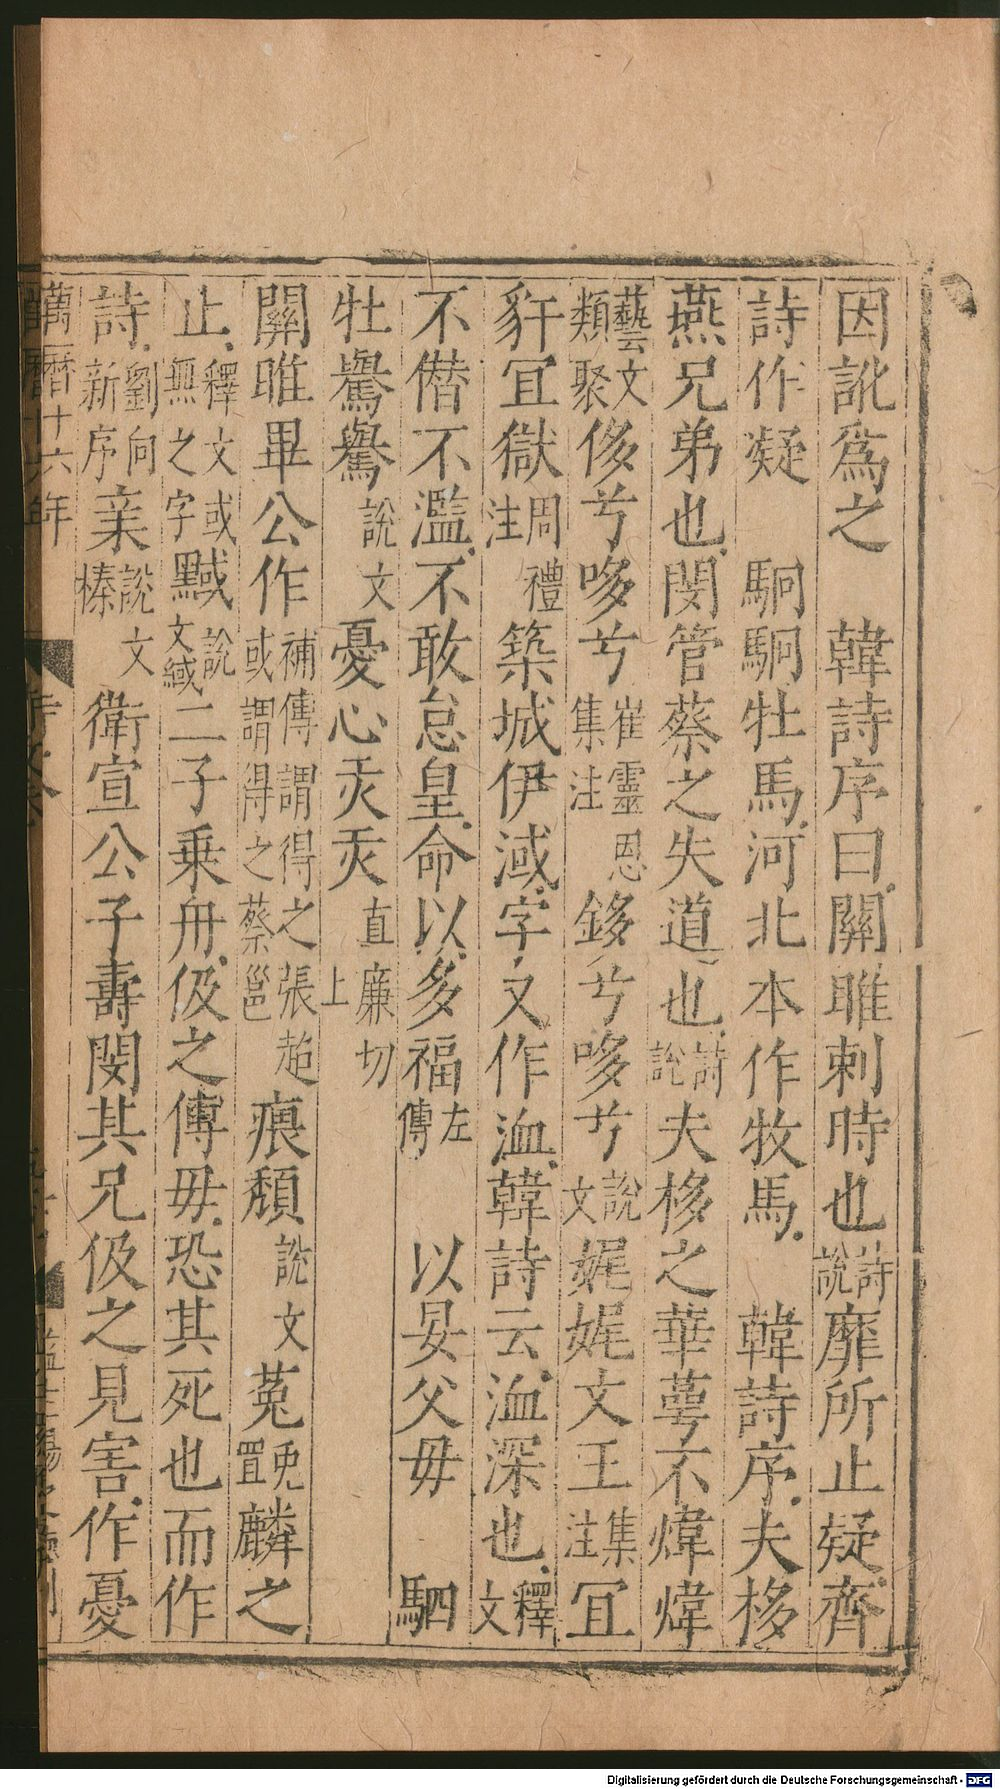 因訛爲之　韓詩序曰關雎刺時也詩說靡所止疑齊
詩作凝　駉駉牡馬河北本作牧馬　韓詩序夫栘
燕兄弟也閔管蔡之失道也詩說夫栘之華萼不煒煒
藝文類聚侈兮哆兮崔靈恩集注鉹兮哆兮說文娓娓文王集注宜
豻宜獄周禮注築城伊淢字又作洫韓詩云洫深也釋文
不僣不濫不敢怠皇命以多福左傳　以晏父毋　駟
牡騤騤說文憂心灻灻直廉切上
關雎畢公作補傳謂得之張超或謂得之蔡邕㾗頽說文菟免罝麟之
止釋文或無之字黬說文緎二子乗舟伋之傅毋恐其死也而作
詩劉向新序亲說文榛　衛宣公子壽閔其兄伋之見害作憂
萬曆十六年
Digitalisierung gefördert durch die Deutsche Forschungsgemeinschaft - DFG